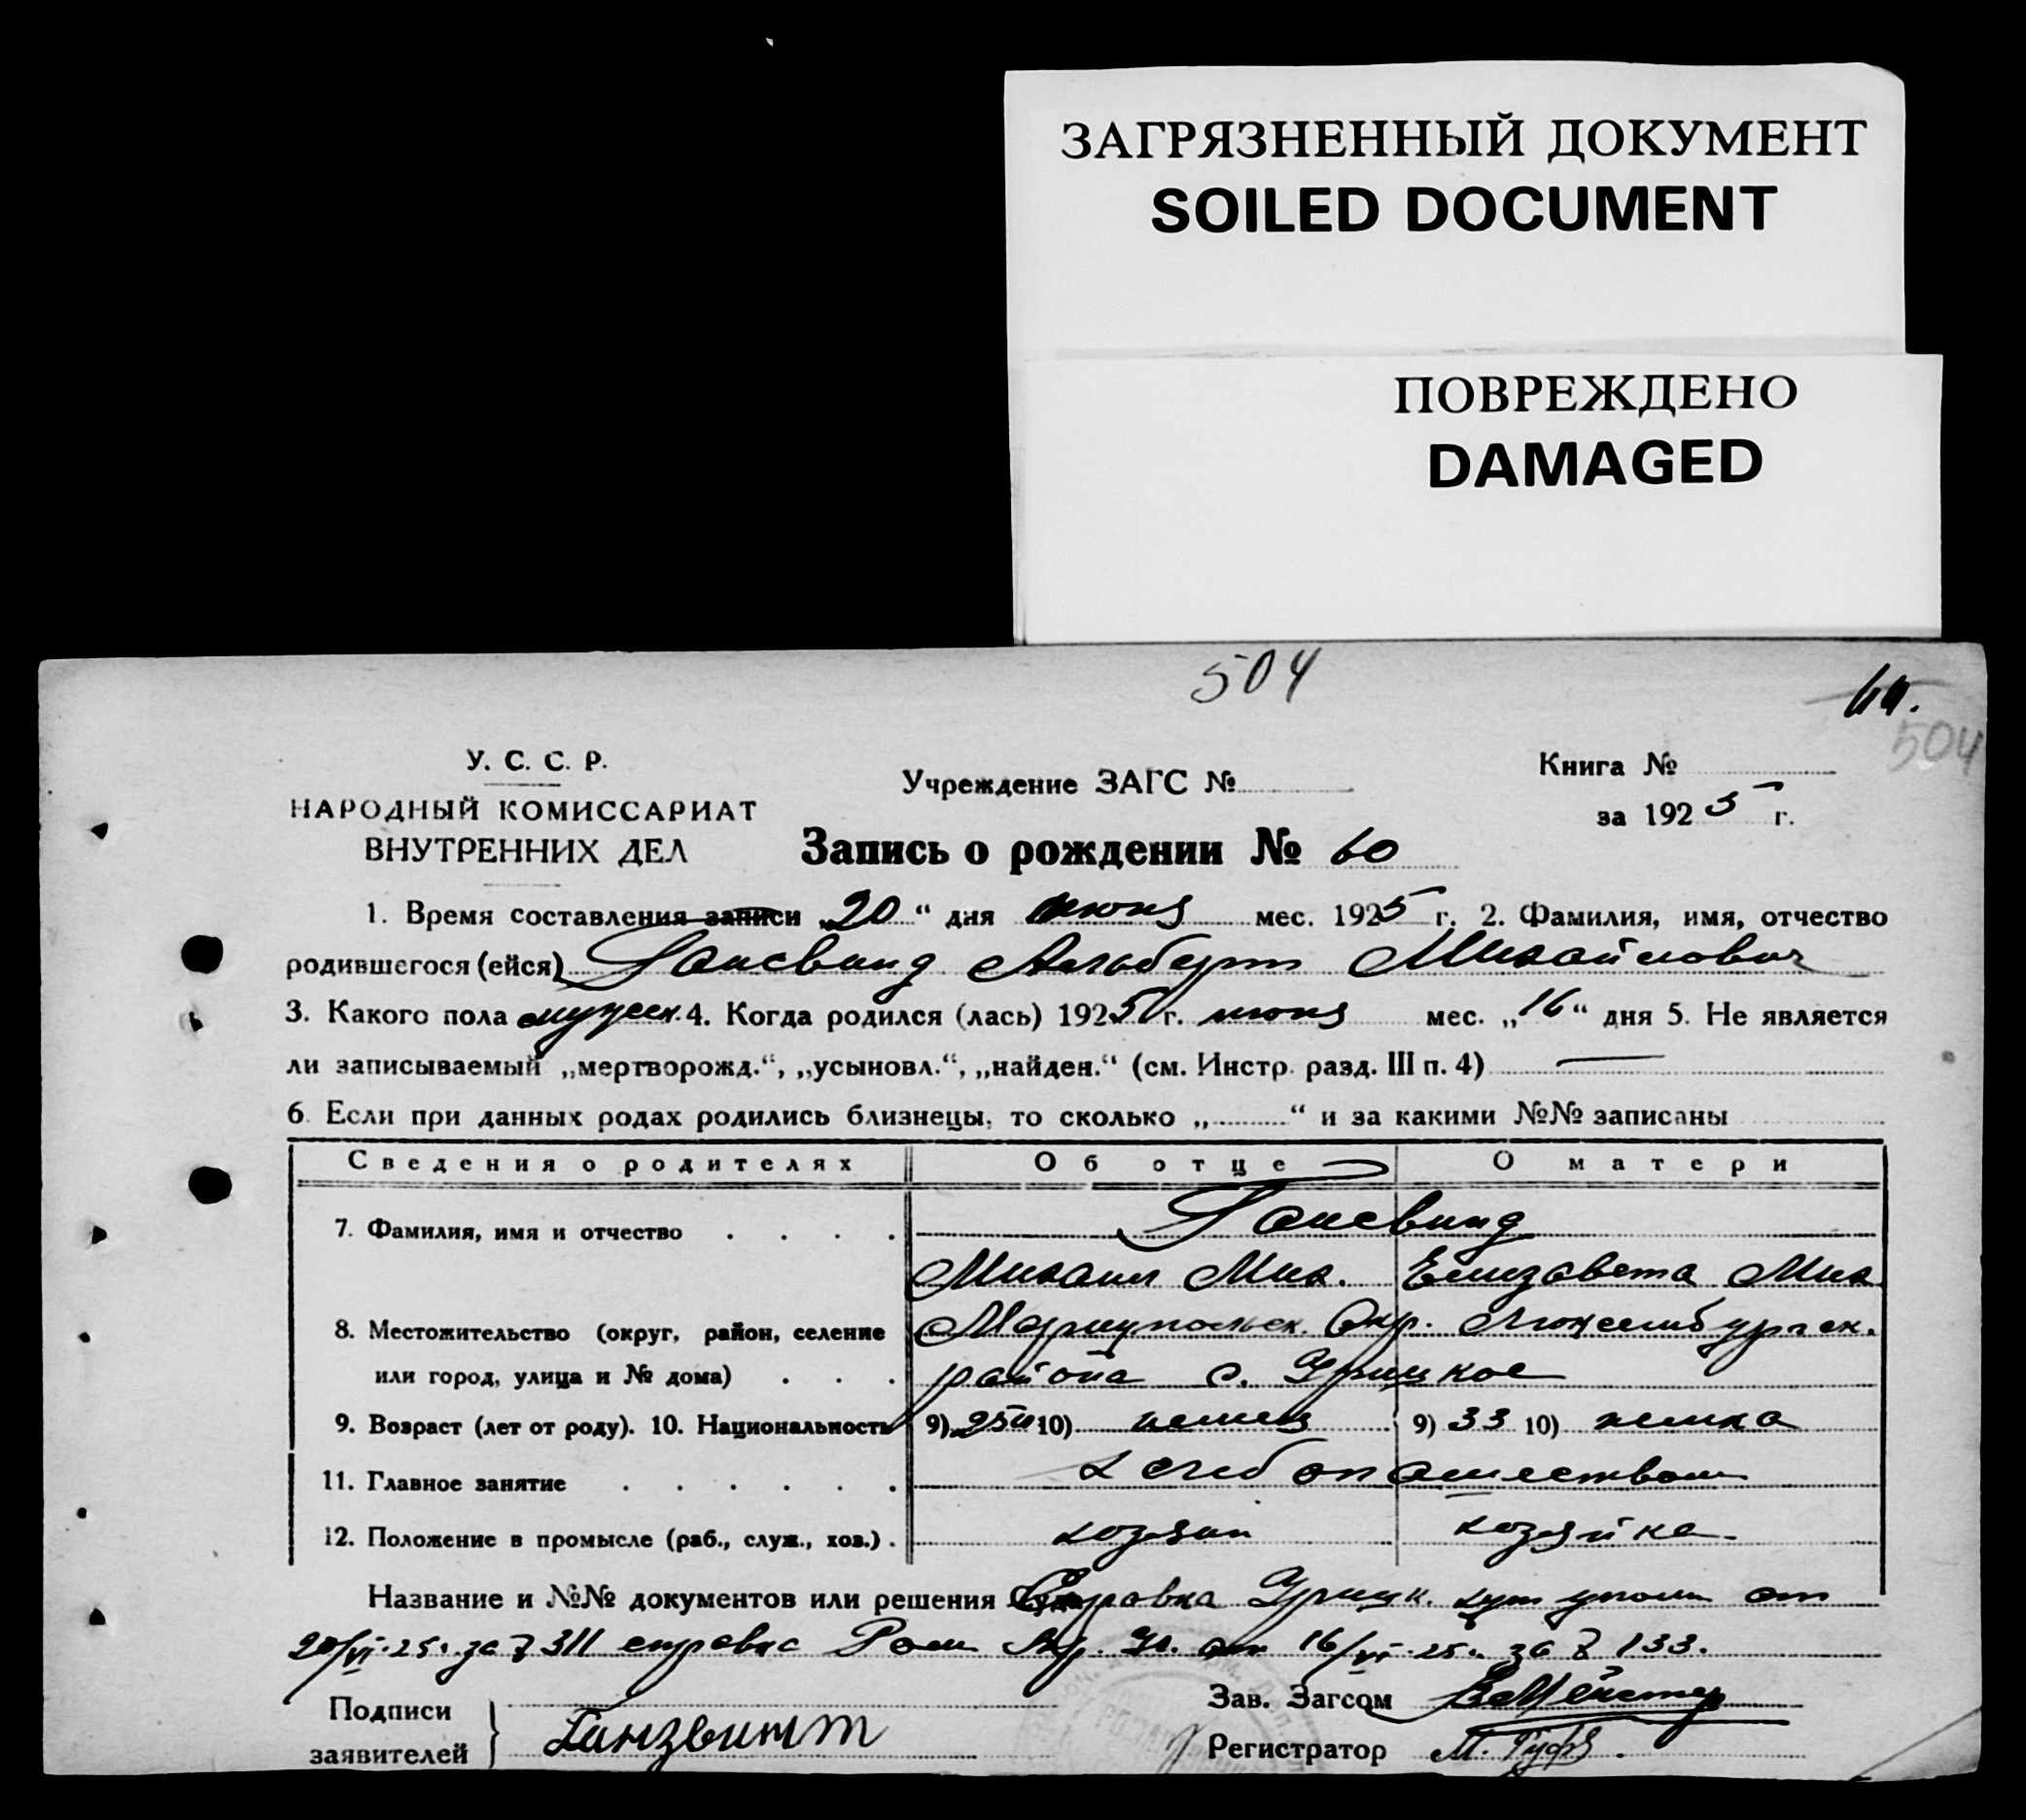 ЗАГРЯЗНЕННЫЙ ДОКУМЕНТ
SOILED DOCUMENT
ПОВРЕЖДЕНО
DAMAGED
504
504
У. С. С. Р.
НАРОДНЫЙ КОМИССАРИАТ
ВНУТРЕННИХ ДЕЛ
Учреждение ЗАГС №
Книга №
за 1925 г.
Запись о рождении № 60
1. Время составления записи „20“ дня июня мес. 1925 г. 2. Фамилия, имя, отчество
родившегося (ейся) Гансвинд Альберт Михайлович
3. Какого пола мужеск. 4. Когда родился (лась) 1925 г. июня мес. „16“ дня 5. Не является
ли записываемый „мертворожд.“, „усыновл.“, „найден.“ (см. Инстр. разд. III п. 4) —
6. Если при данных родах родились близнецы, то сколько „.......“ и за какими №№ записаны
Сведения о родителях Об отце О матери
7. Фамилия, имя и отчество . . . . Гансвинд
Михаил Мих. Елизавета Мих
8. Местожительство (округ, район, селение Мариупольск. Окр. Люксембургск.
или город, улица и № дома) . . . района с. Урицкое
9. Возраст (лет от роду). 10. Национальность 9) 10) немец 9) 33 10) немка
11. Главное занятие . . . . . . хлебопашеством
12. Положение в промысле (раб., служ., хоз.) . хозяин хозяйка
Название и №№ документов или решения Справка Урицк. от
20/VI-25г. за № 311 справка от 16/VI-25г. за № 133.
Подписи
заявителей } Ганзвинт
Зав. Загсом
Регистратор М.